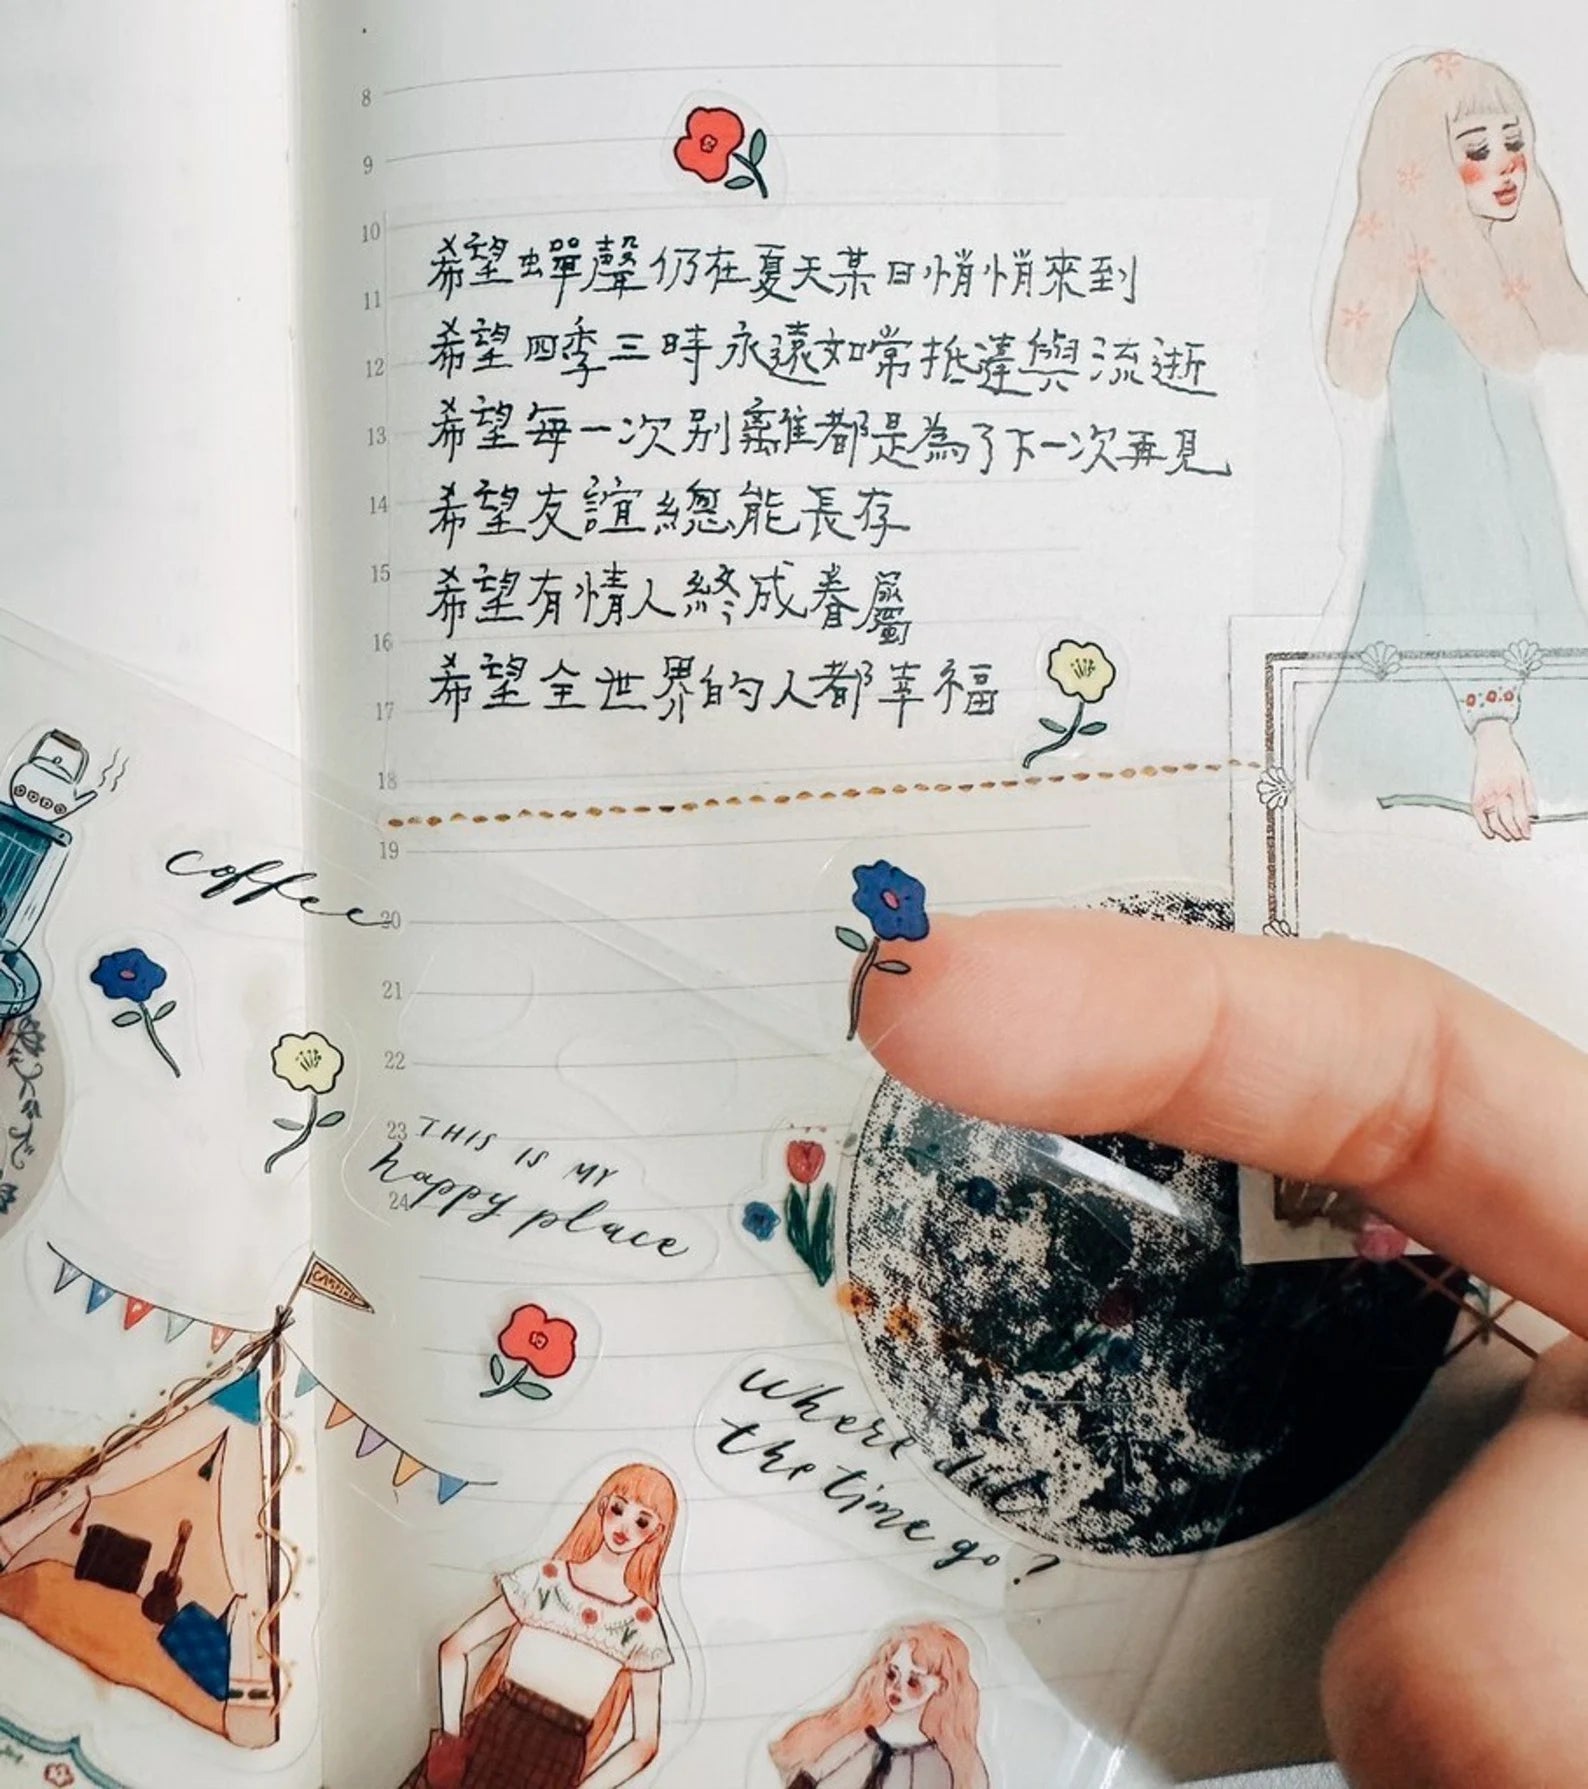 8
9
10
希望蟬聲仍在夏天某日悄悄來到
11
希望四季三時永遠如常抵達與流逝
12
希望每一次別離都是為了下一次再見
13
希望友誼總能長存
14
希望有情人終成眷屬
15
16
希望全世界的人都幸福
17
18
19
coffee
20
21
22
23
THIS IS MY
24
happy place
CAMPING
where did
the time go?